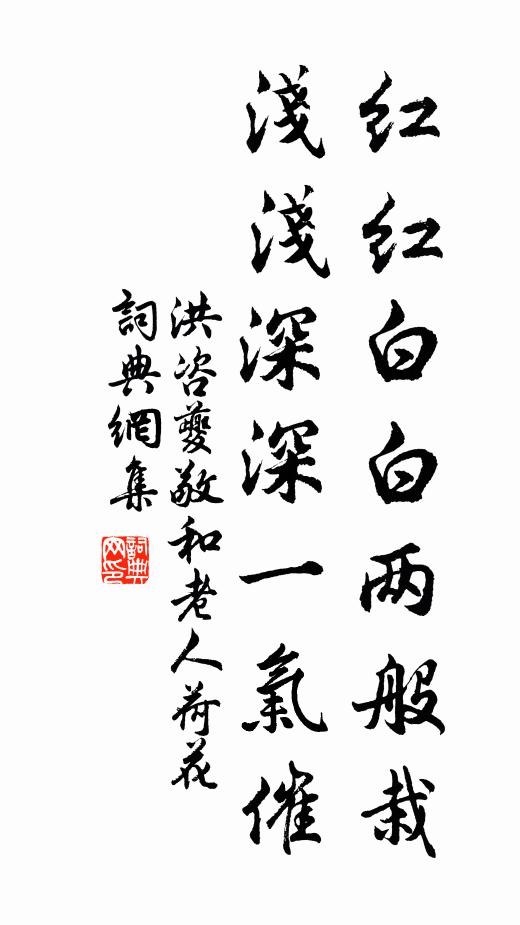 红红白白两般栽
淺淺深深一氣催
洪咨夔敬和老人荷花
詞典網集
詞典网印